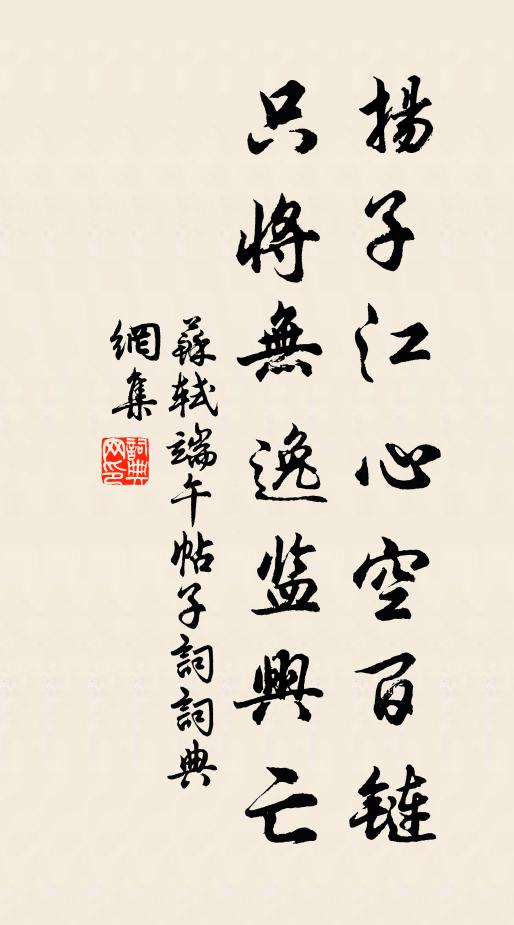 揚子江心空百鏈
只將無逸監興亡
蘇軾端午帖子詞詞典
網集
詞典網印